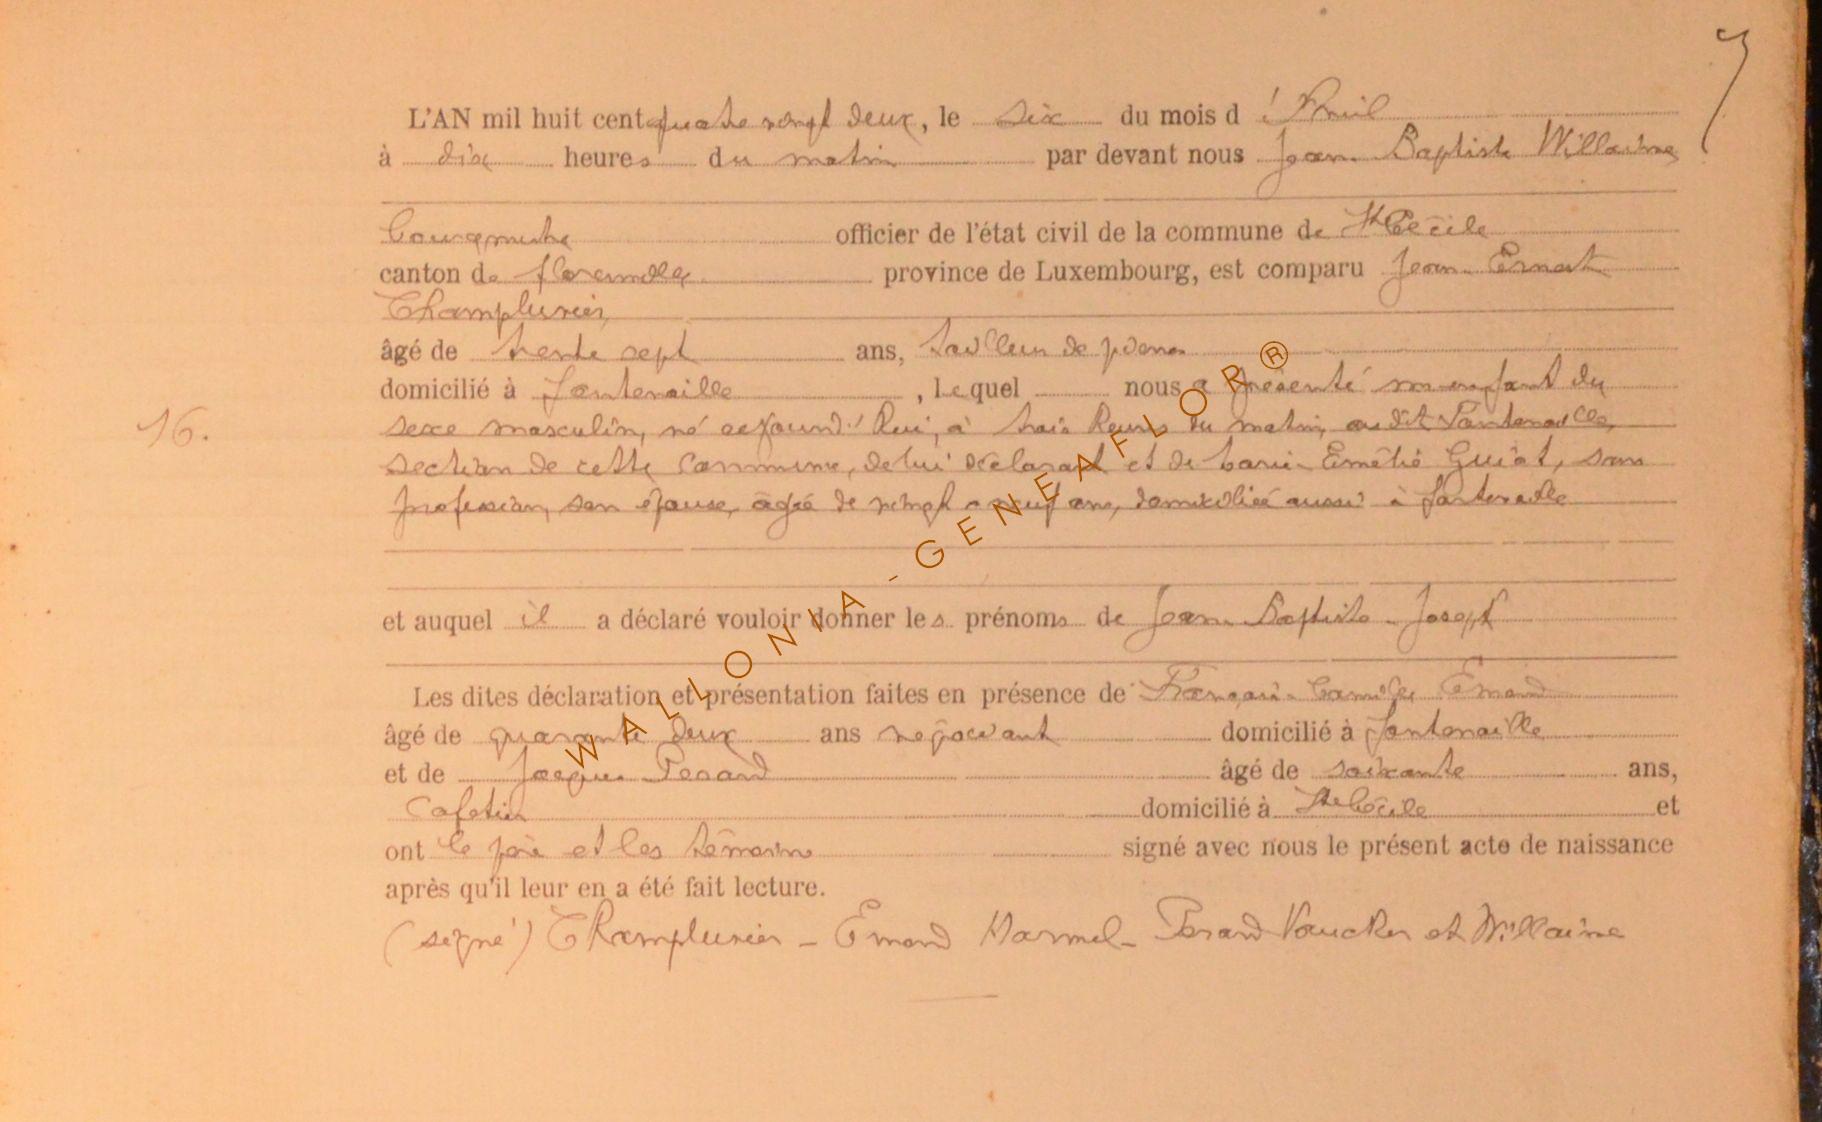 7
L'AN mil huit cent quatre vingt deux, le six du mois d'Avril
à dix heures du matin par devant nous Jean Baptiste Willaime
Bourgmestre officier de l'état civil de la commune de Ste Cécile
canton de florenville province de Luxembourg, est comparu Jean Ernest
Champluvier
âgé de trente sept ans, tailleur de pierres
domicilié à fontenoille, lequel nous a présenté un enfant du
16. sexe masculin, né aujourd'hui, à trois heures du matin, audit Fontenoille,
section de cette commune, de lui déclarant et de Marie Guiot, sans
profession, son épouse, âgée de vingt neuf ans, domiciliée aussi à fontenoille
et auquel il a déclaré vouloir donner les prénoms de Jean Baptiste Joseph
Les dites déclaration et présentation faites en présence de François Camille Emond
âgé de quarante deux ans négociant domicilié à fontenoille
et de Jacques Perard âgé de soixante ans,
Cafetier domicilié à Ste Cécile et
ont le père et les témoins signé avec nous le présent acte de naissance
après qu'il leur en a été fait lecture.
(signé) Champluvier - Emond - Perard et Willaime
WALLONIA - GENEAFLOR ®